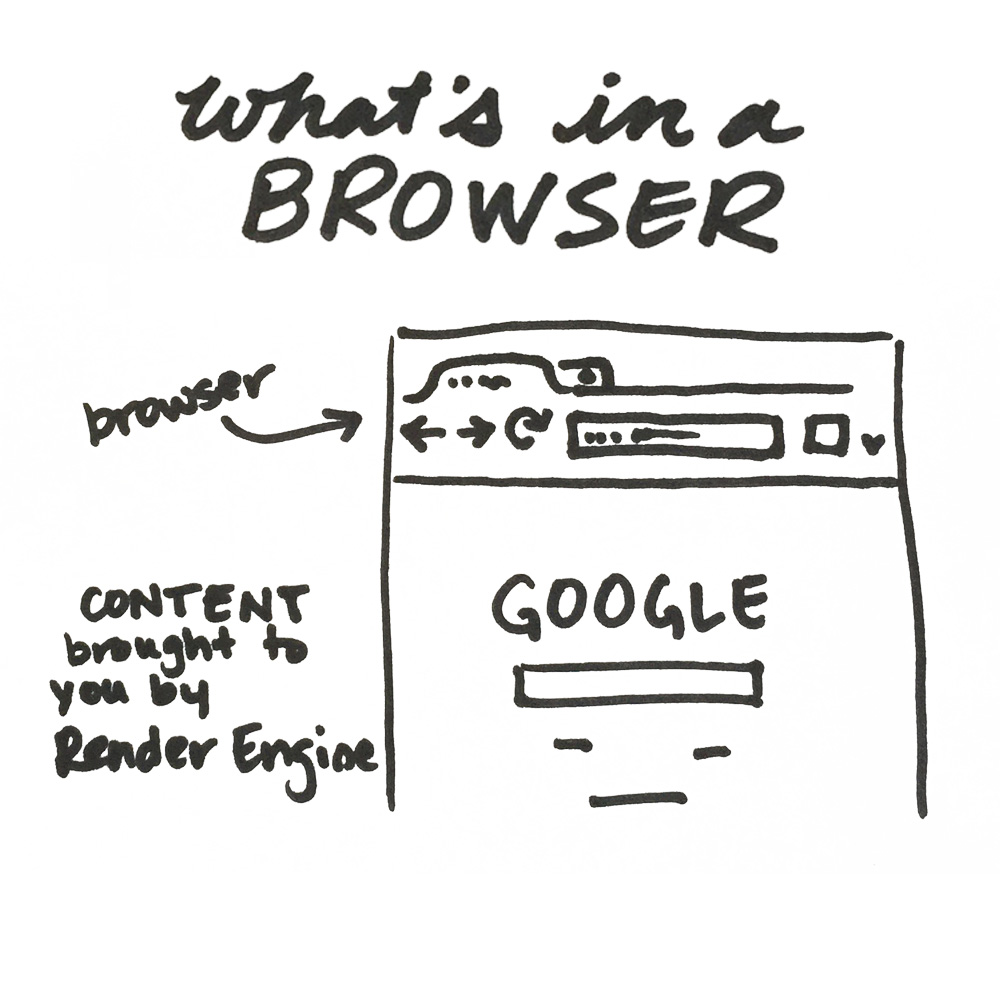 what's in a
BROWSER
browser
CONTENT
brought to
you by
Render Engine
GOOGLE